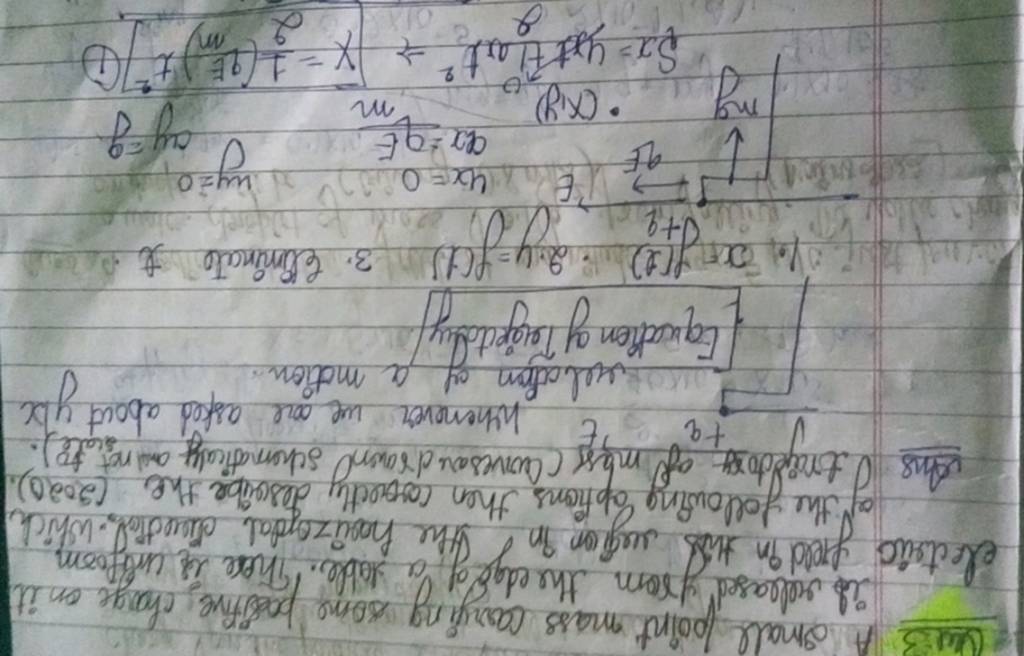 Que 3
A small point mass carrying some positive charge on it
is released from the edge of a table. There is uniform
electric field in this region in the horizontal direction. Which
of the following options then correctly describe the (2020).
trajectory of mass (curves are drawn schematically are not to scale).
Ans
+q E
Whenever we are asked about y/x
relation of a motion.
Equation of Trajectory
1. x = f(t) 2. y = f(t) 3. Eliminate t
+q
qE E
mg
• (x,y)
ux = 0 uy = 0
ax = qE/m ay = g
Sx = uxt + 1/2 axt² ⇒ x = 1/2 (qE/m) t² ①